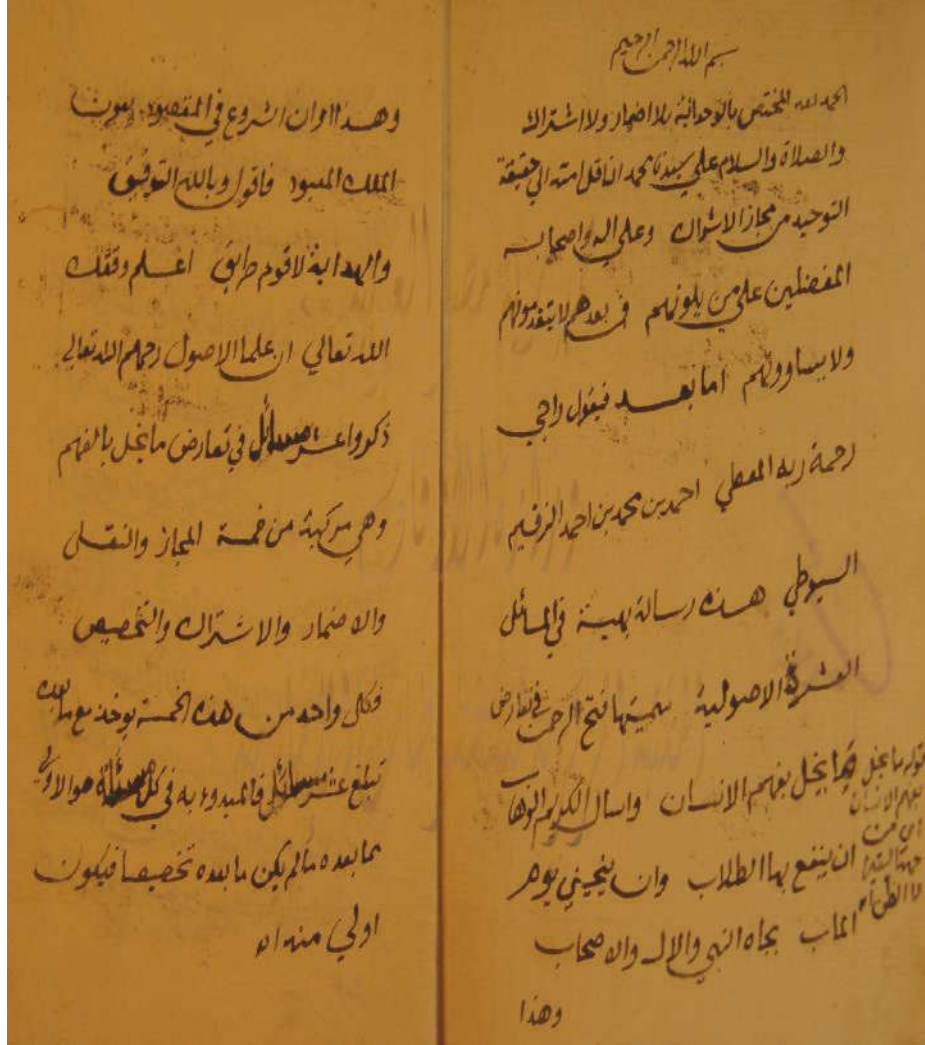 بسم الله الرحمن الرحيم
الحمد لله المختص بالوحدانية بلا اضمار ولا اشتراك
والصلاة والسلام علي سيدنا محمد الناقل امته الي حقيقة
التوحيد من مجاز الاشراك وعلي اله واصحابه
المفضلين علي من يلونهم في بعدهم لا يتقدمونهم
ولا يساوونهم اما بعد فيقول راجي
رحمة ربه المعطي احمد بن محمد بن احمد الرقيم
السيوطي هذه رسالة بهية في المسائل
العشرة الاصولية سميتها فتح الرحمن في تعارض
ما يخل بفهم الانسان واسال الكريم الوهاب
ان ينفع بها الطلاب وان ينجيني يوم
الماب بجاه النبي والال والاصحاب
وهذا
قوله ما يخل
بفهم الانسان
اي من
جهة
لا الظن
وهذا اوان الشروع في المقصود بعون
الملك المعبود فاقول وبالله التوفيق
والهداية لاقوم طريق اعلم وفقك
الله تعالي ان علما الاصول رحمهم الله تعالي
ذكروا عشر مسائل في تعارض ما يخل بالفهم
وهي مركبة من خمسة المجاز والنقل
والاضمار والاشتراك والتخصيص
فكل واحد من هذه الخمسة يوخذ مع ما بعده
تبلغ عشر مسائل فالمبدوء به في كل مسئلة هو الاولي
مما بعده ما لم يكن ما بعده تخصيصا فيكون
اولي منه اه